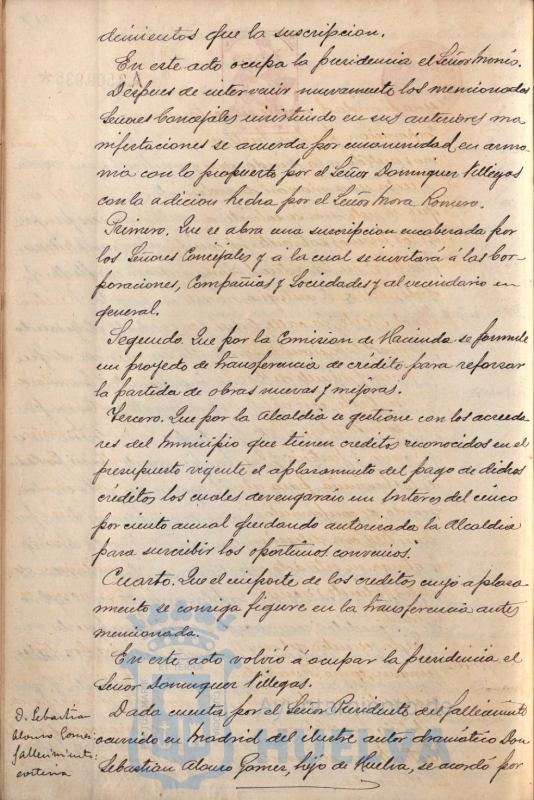 dimientos que la suscripcion.
En este acto ocupa la presidencia el Señor Monis.
Despues de intervenir nuevamente los mencionados
Señores Concejales insistiendo en sus anteriores ma
nifestaciones se acuerda por unanimidad, en armo
nia con lo propuesto por el Señor Dominguez Villegas
con la adicion hecha por el Señor Mora Romero.
Primero. Que se abra una suscripcion encabezada por
los Señores Concejales y á la cual se invitará á las Cor-
poraciones, Compañias y Sociedades y al vecindario en
general.
Segundo. Que por la Comision de Hacienda se formule
un proyecto de transferencia de crédito para reforzar
la partida de obras nuevas y mejoras.
Tercero. Que por la Alcaldia se gestione con los acreedo
res del Municipio que tienen creditos reconocidos en el
presupuesto vigente el aplazamiento del pago de dichos
créditos los cuales devengarán un interes del cinco
por ciento anual quedando autorizada la Alcaldia
para suscribir los oportunos convenios.
Cuarto. Que el importe de los creditos cuyo aplaza
miento se consiga figure en la transferencia antes
mencionada.
En este acto volvió á ocupar la presidencia el
Señor Dominguez Villegas.
D. Sebastian
Alonso Gomez:
fallecimiento:
Dada cuenta por el Señor Presidente del fallecimiento
ocurrido en Madrid del ilustre autor dramático Don
Sebastian Alonso Gomez, hijo de Huelva, se acordó por
HUELVA